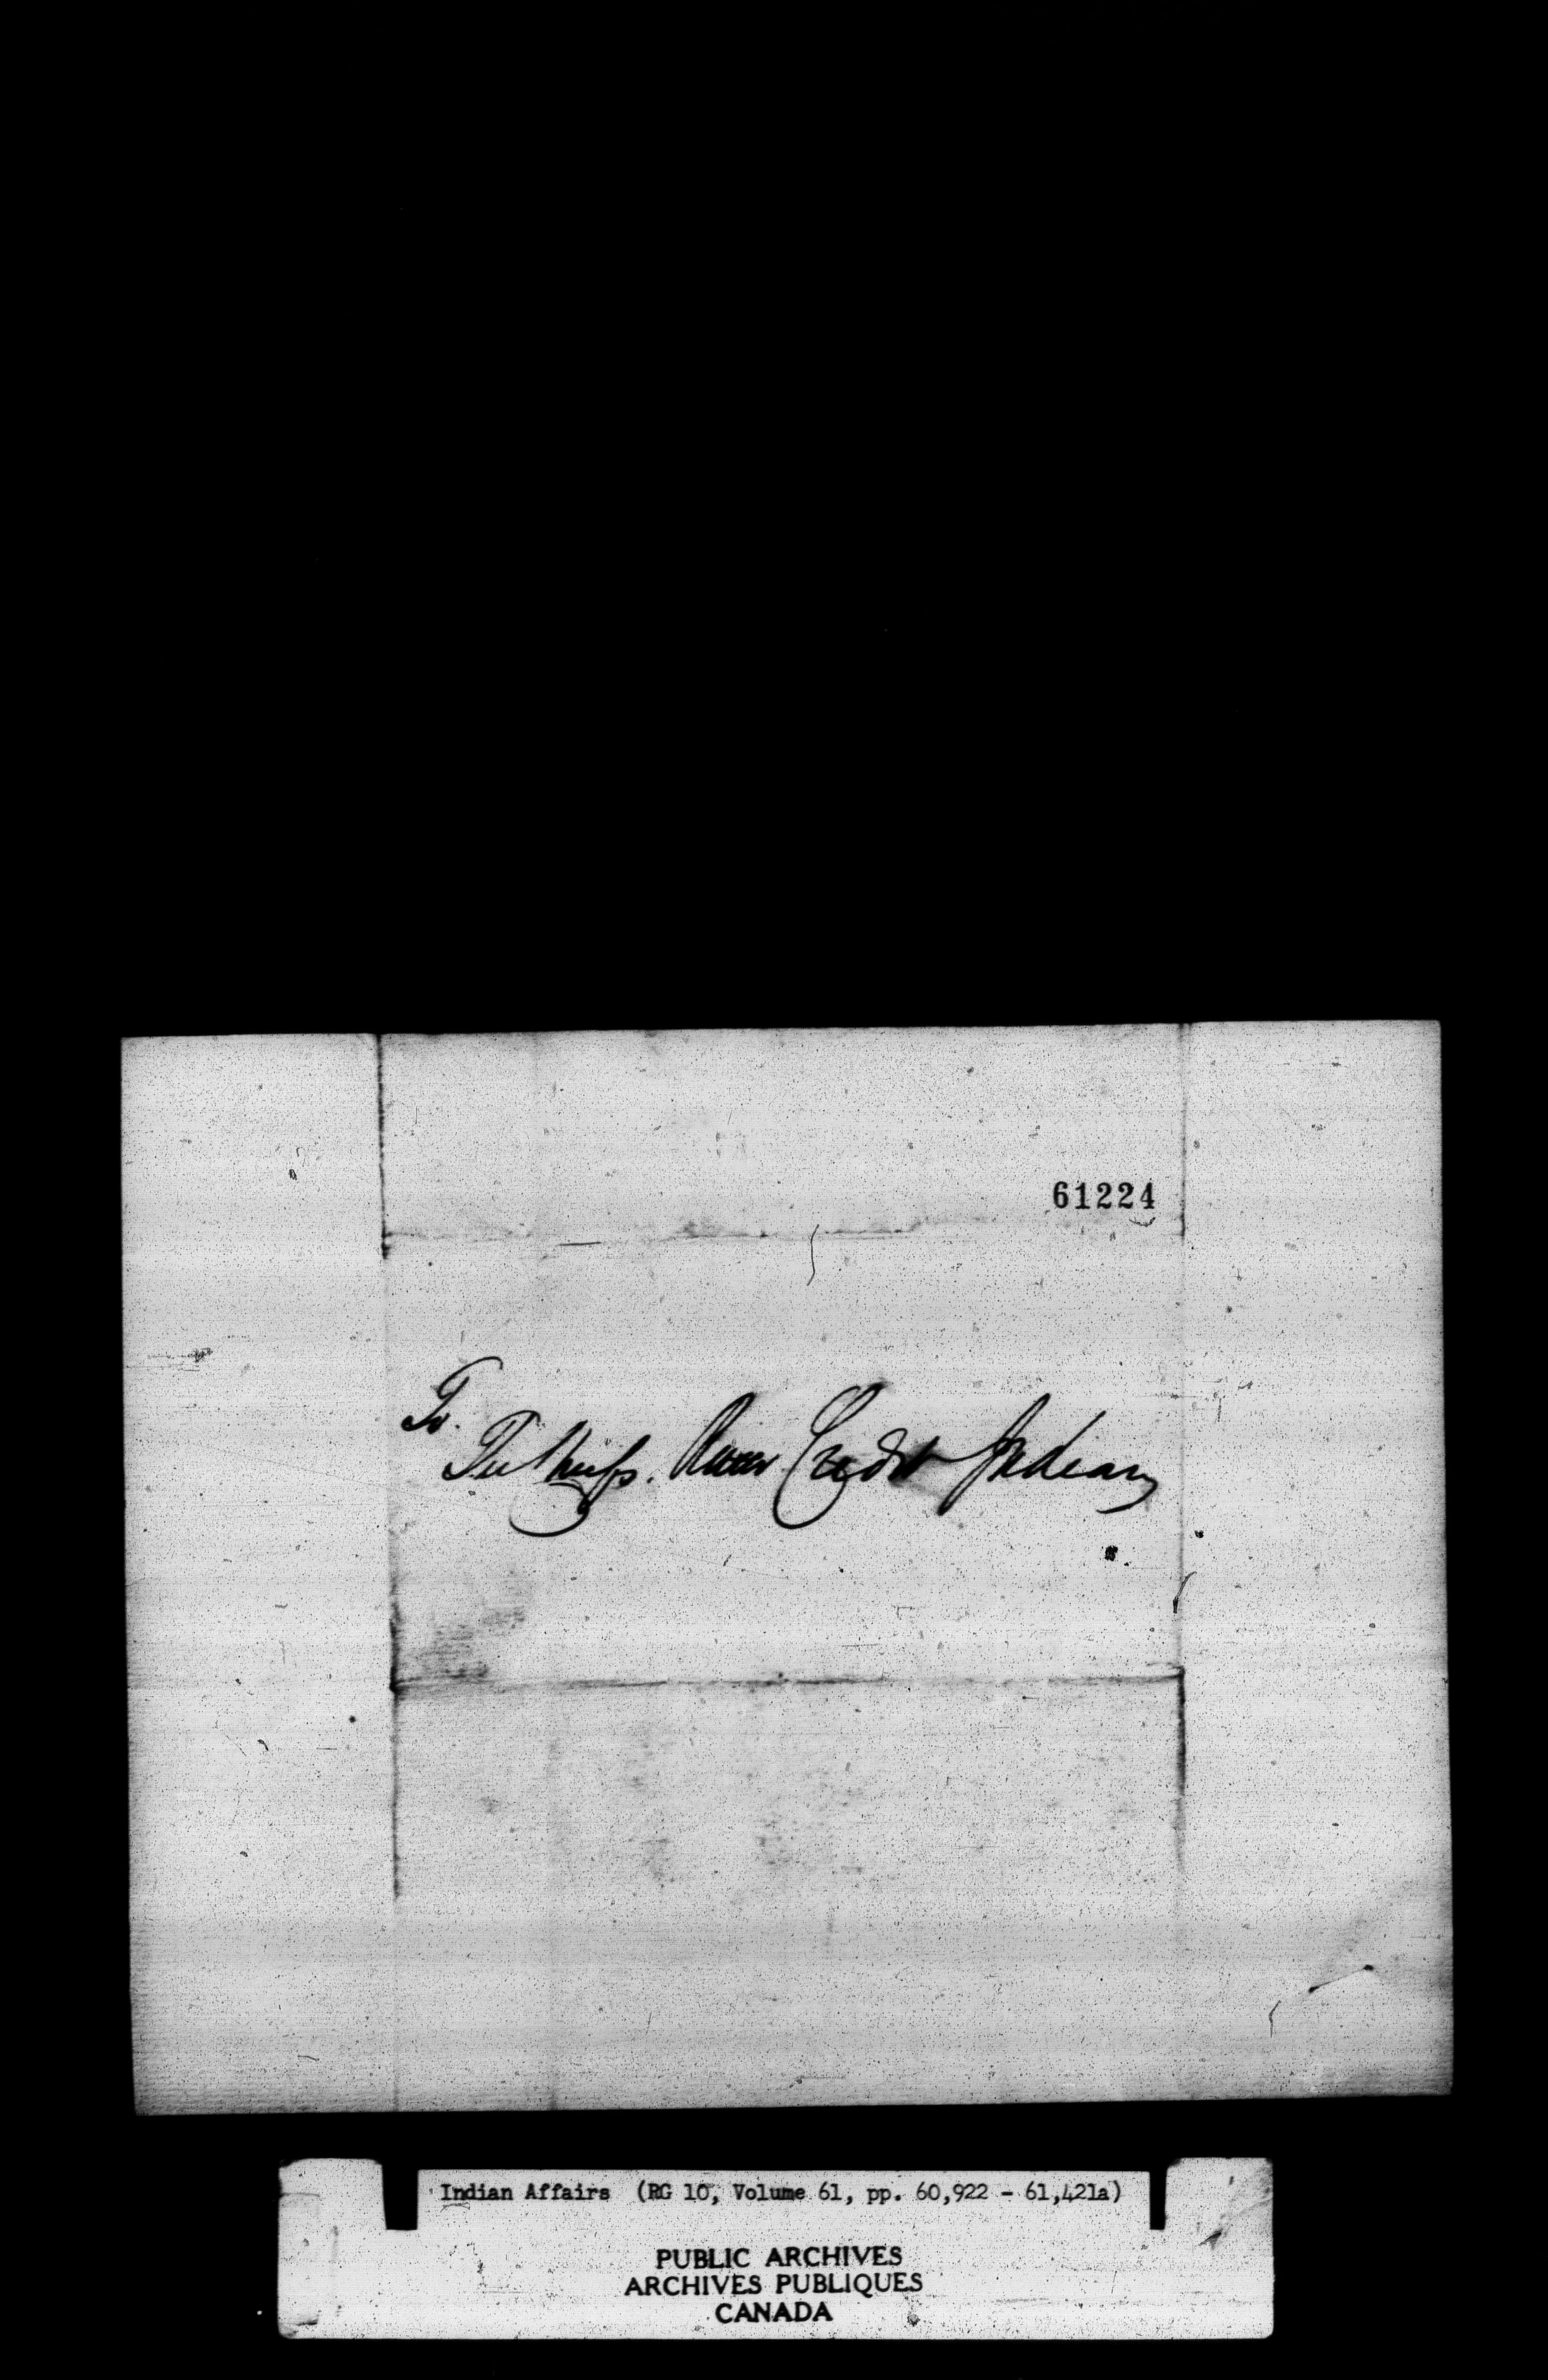 61224
To.
The Chiefs. River Credit Indians
Indian Affairs (RG 10, Volume 61, pp. 60,922 - 61,421a)
PUBLIC ARCHIVES
ARCHIVES PUBLIQUES
CANADA